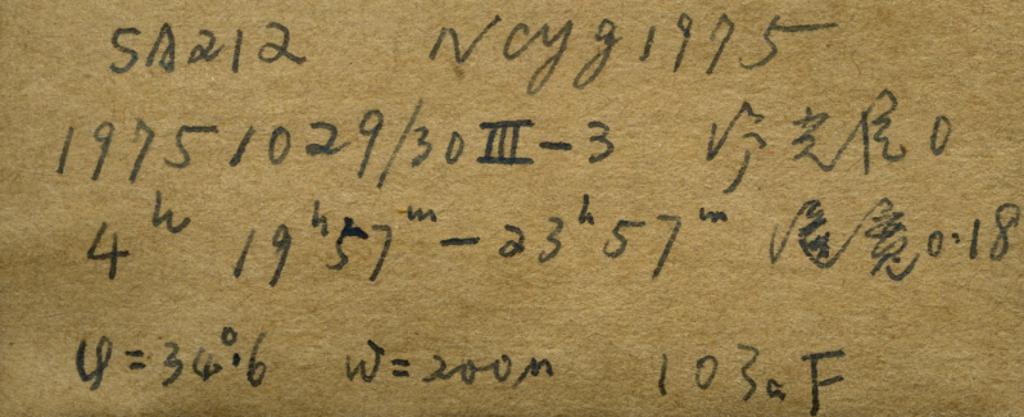 SA212 N Cyg 1975
1975 10 29/30 III-3 0
4h 19h57m-23h57m 宽0.18
φ=34°.6 W=200μ 103aF